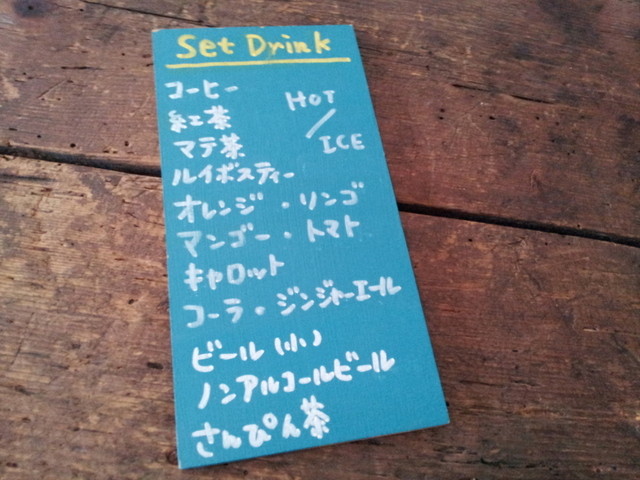 Set Drink
コーヒー
紅茶
マテ茶
HOT
/
ICE
ルイボスティー
オレンジ・リンゴ
マンゴー・トマト
キャロット
コーラ・ジンジャーエール
ビール(小)
ノンアルコールビール
さんぴん茶